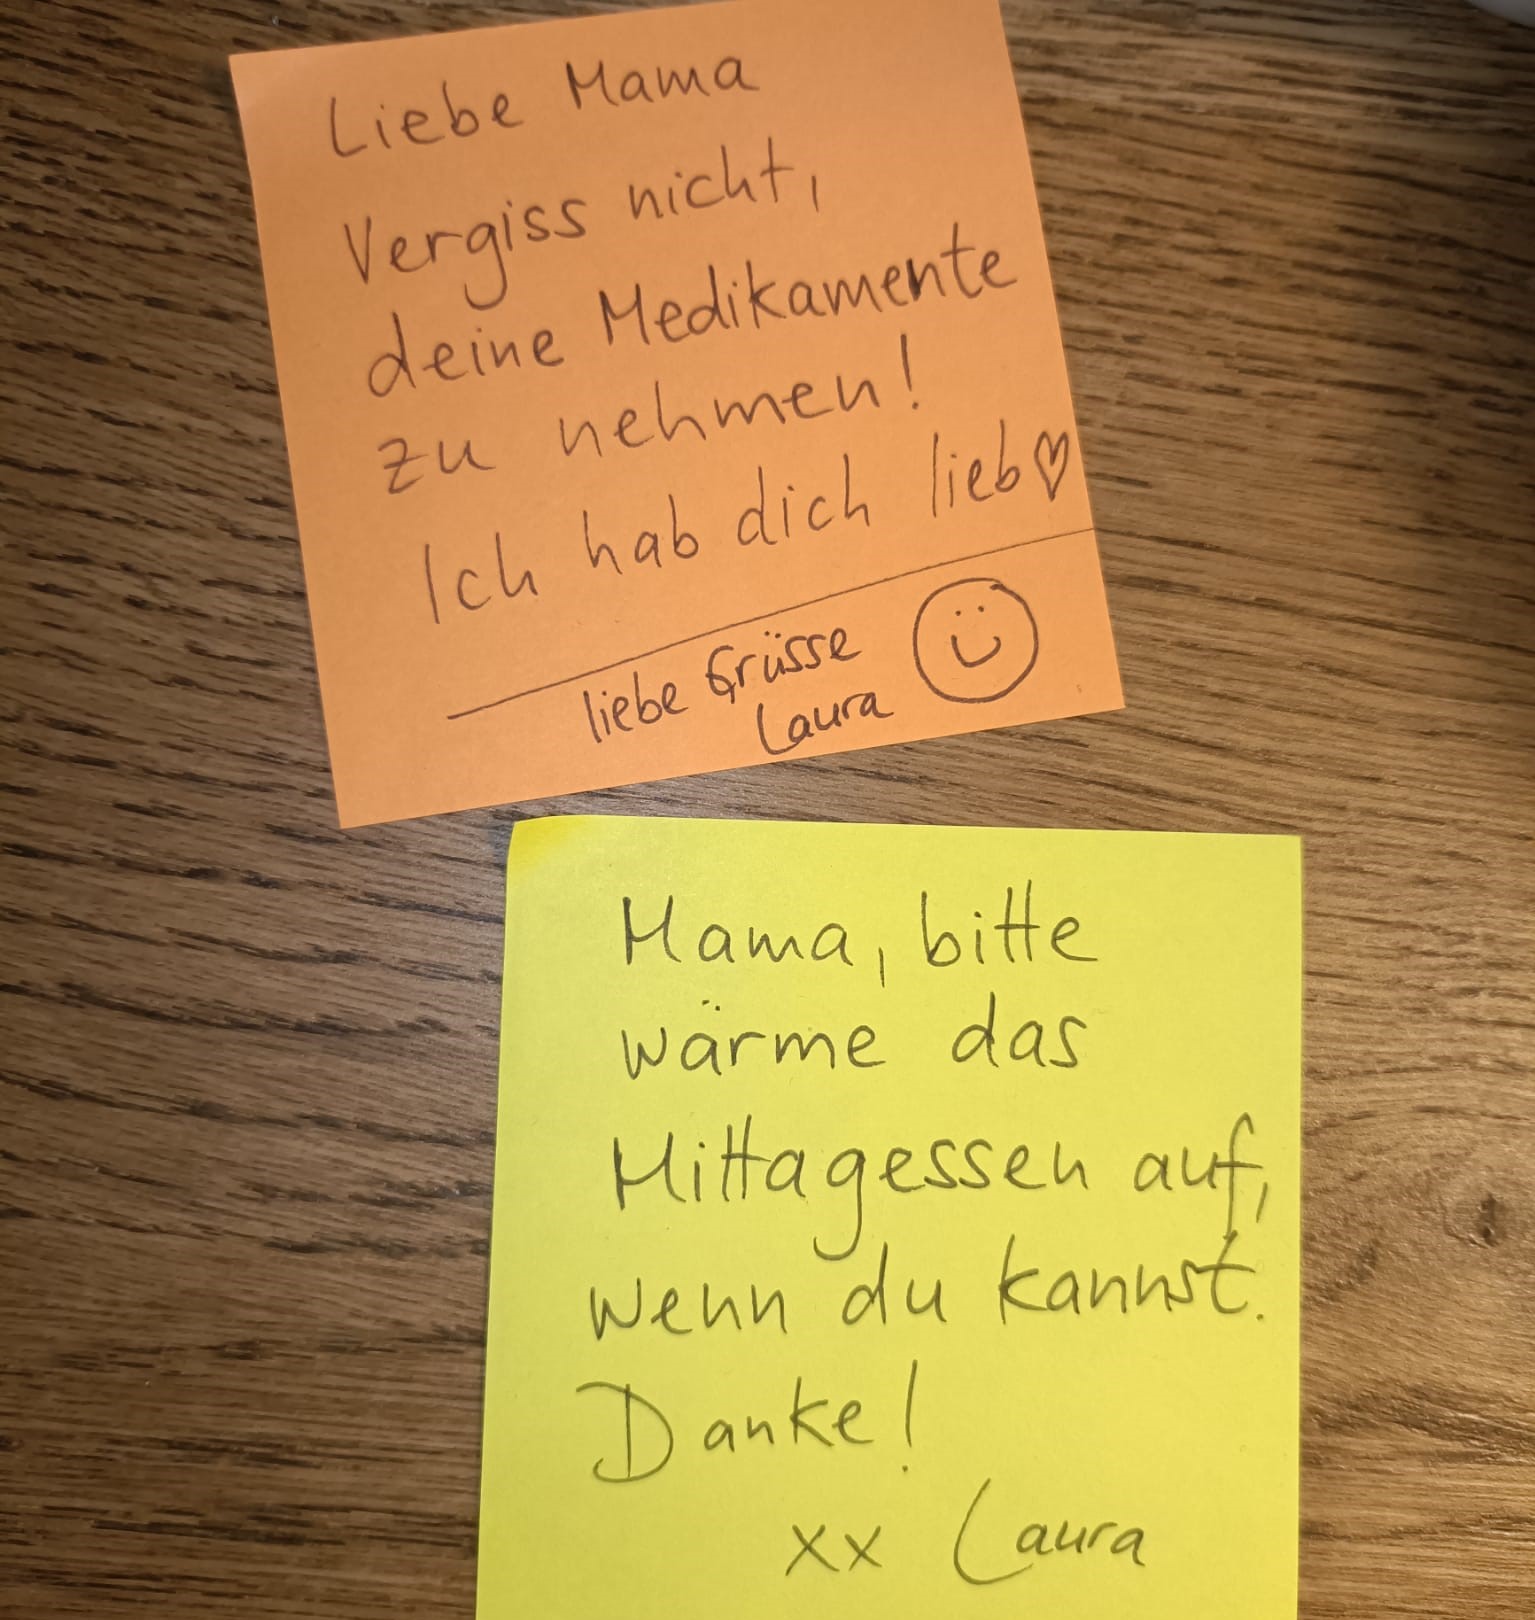 Liebe Mama
Vergiss nicht,
deine Medikamente
zu nehmen!
Ich hab dich lieb♡
liebe Grüsse
Laura
Mama, bitte
wärme das
Mittagessen auf,
wenn du kannst.
Danke!
xx Laura